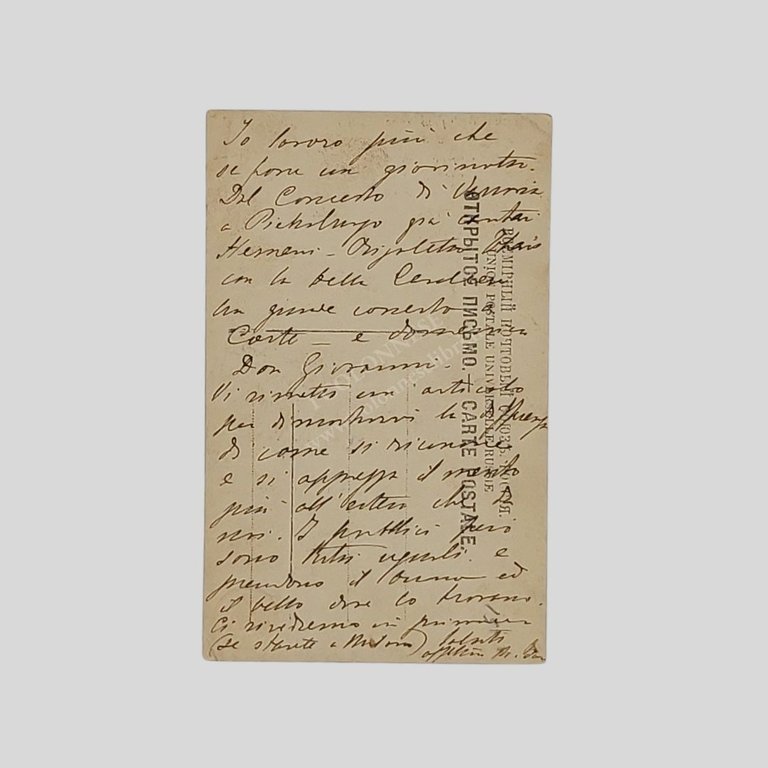 Io lavoro più che
se fossi un giovinotto.
Dal Concerto di
a Pietroburgo già cantai
Hernani - Rigoletto Thais
con la bella
un grande concerto a
Corte - e domenica
Don Giovanni.
Vi rimetto un articolo
per dimostrarvi la
di come si
e si apprezza il merito
più all'estero che da
noi. I pubblici però
sono tutti uguali e
prendono il buono ed
il bello dove lo trovano.
Ci rivedremo in primavera
(se starete a Milano) saluti
ВСЕМІРНЫЙ ПОЧТОВЫЙ СОЮЗЪ. РОССІЯ.
UNION POSTALE UNIVERSELLE. RUSSIE
ОТКРЫТОЕ ПИСЬМО. — CARTE POSTALE.